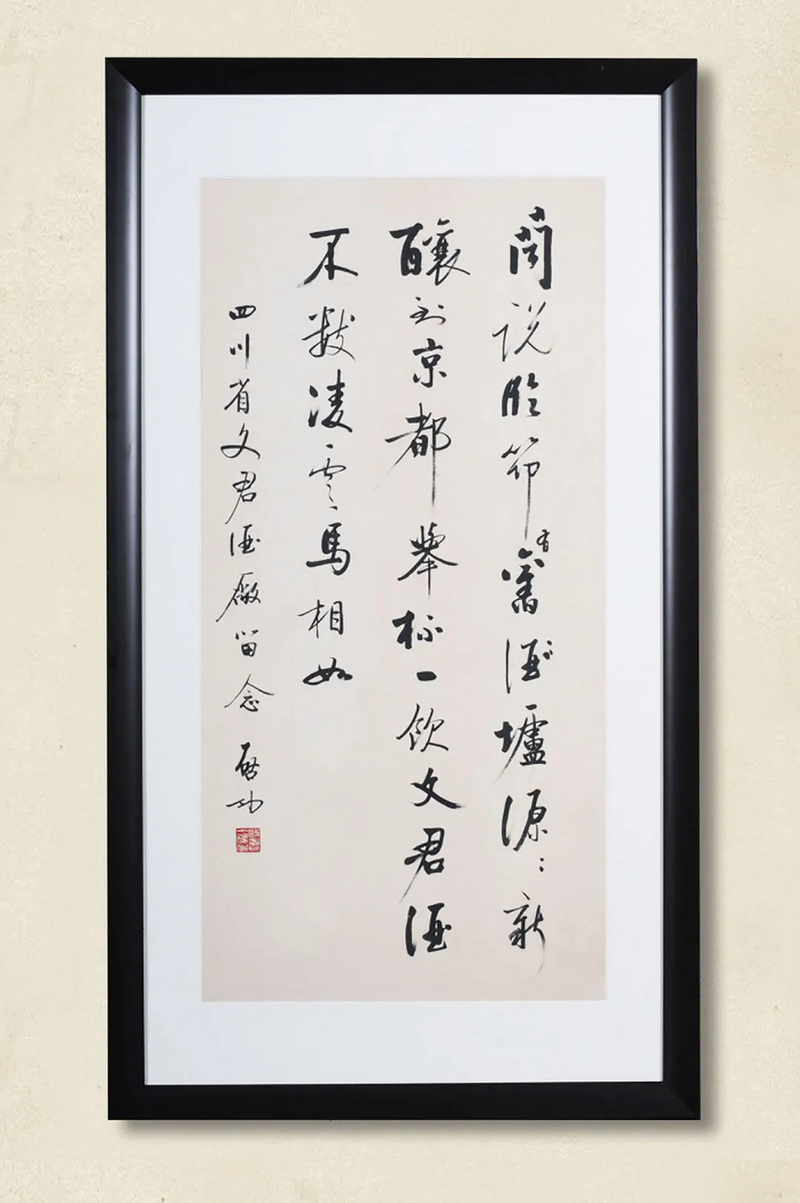 聞説臨邛有舊酒壚源〻新
釀到京都舉杯一飲文君酒
不數凌雲馬相如
四川省文君酒廠留念 啓功